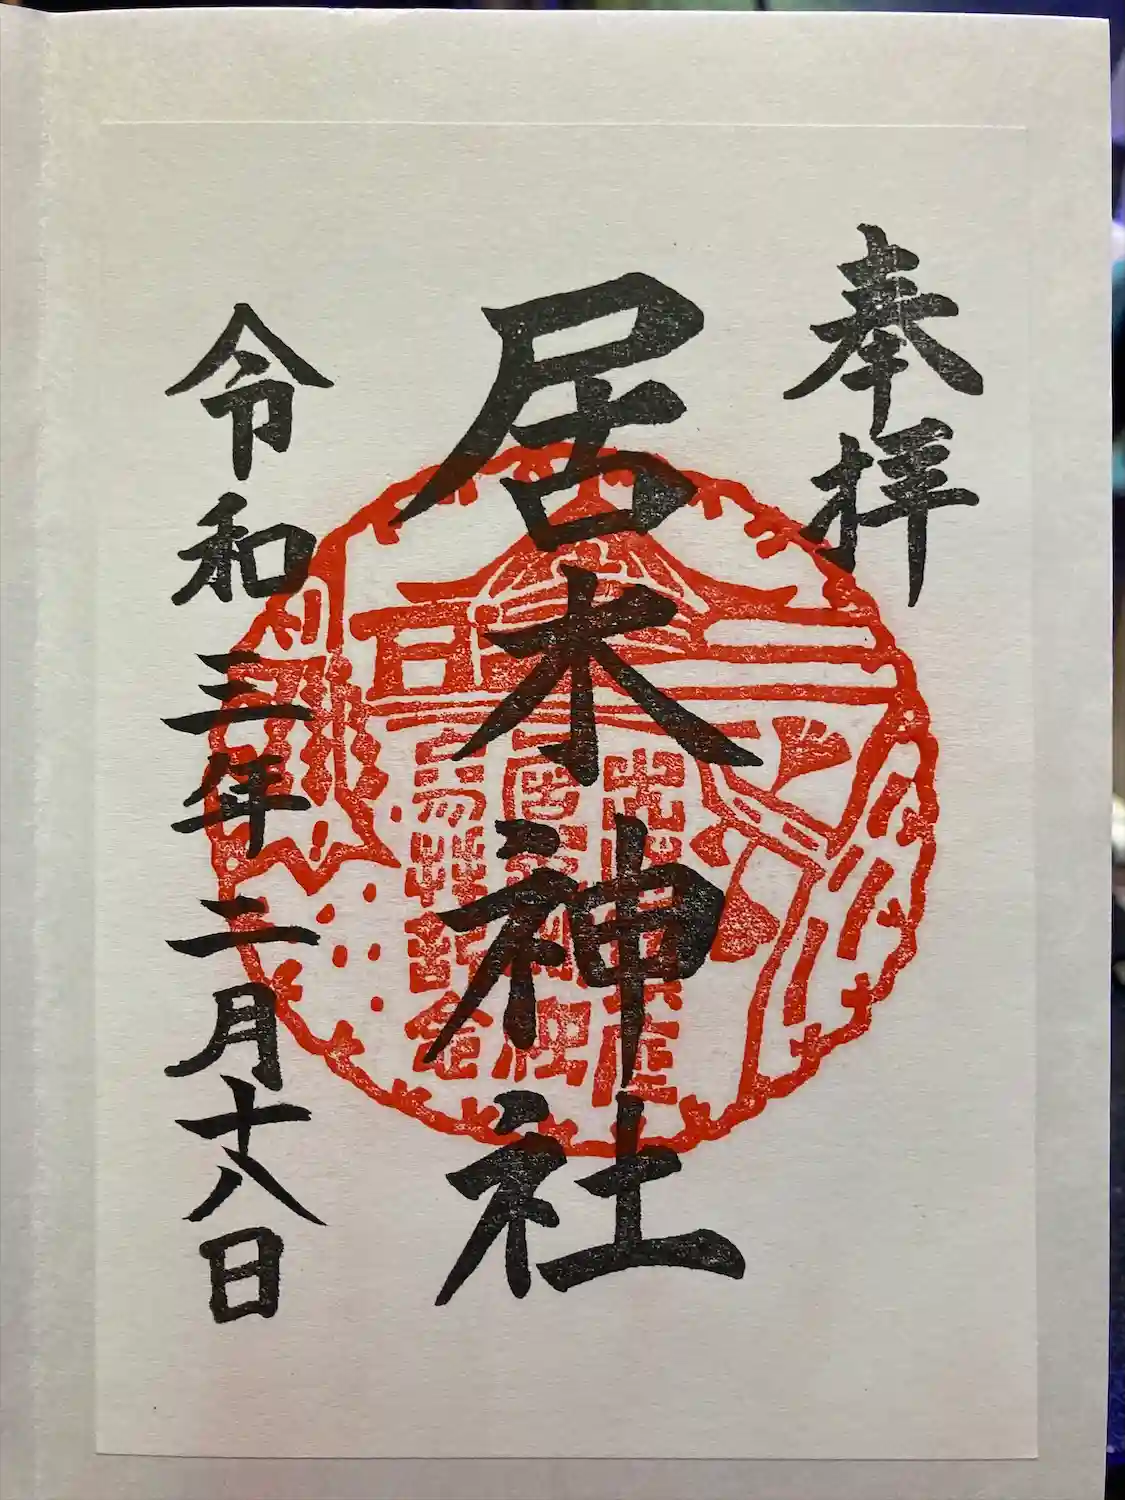 奉拝
居木神社
令和三年二月十八日